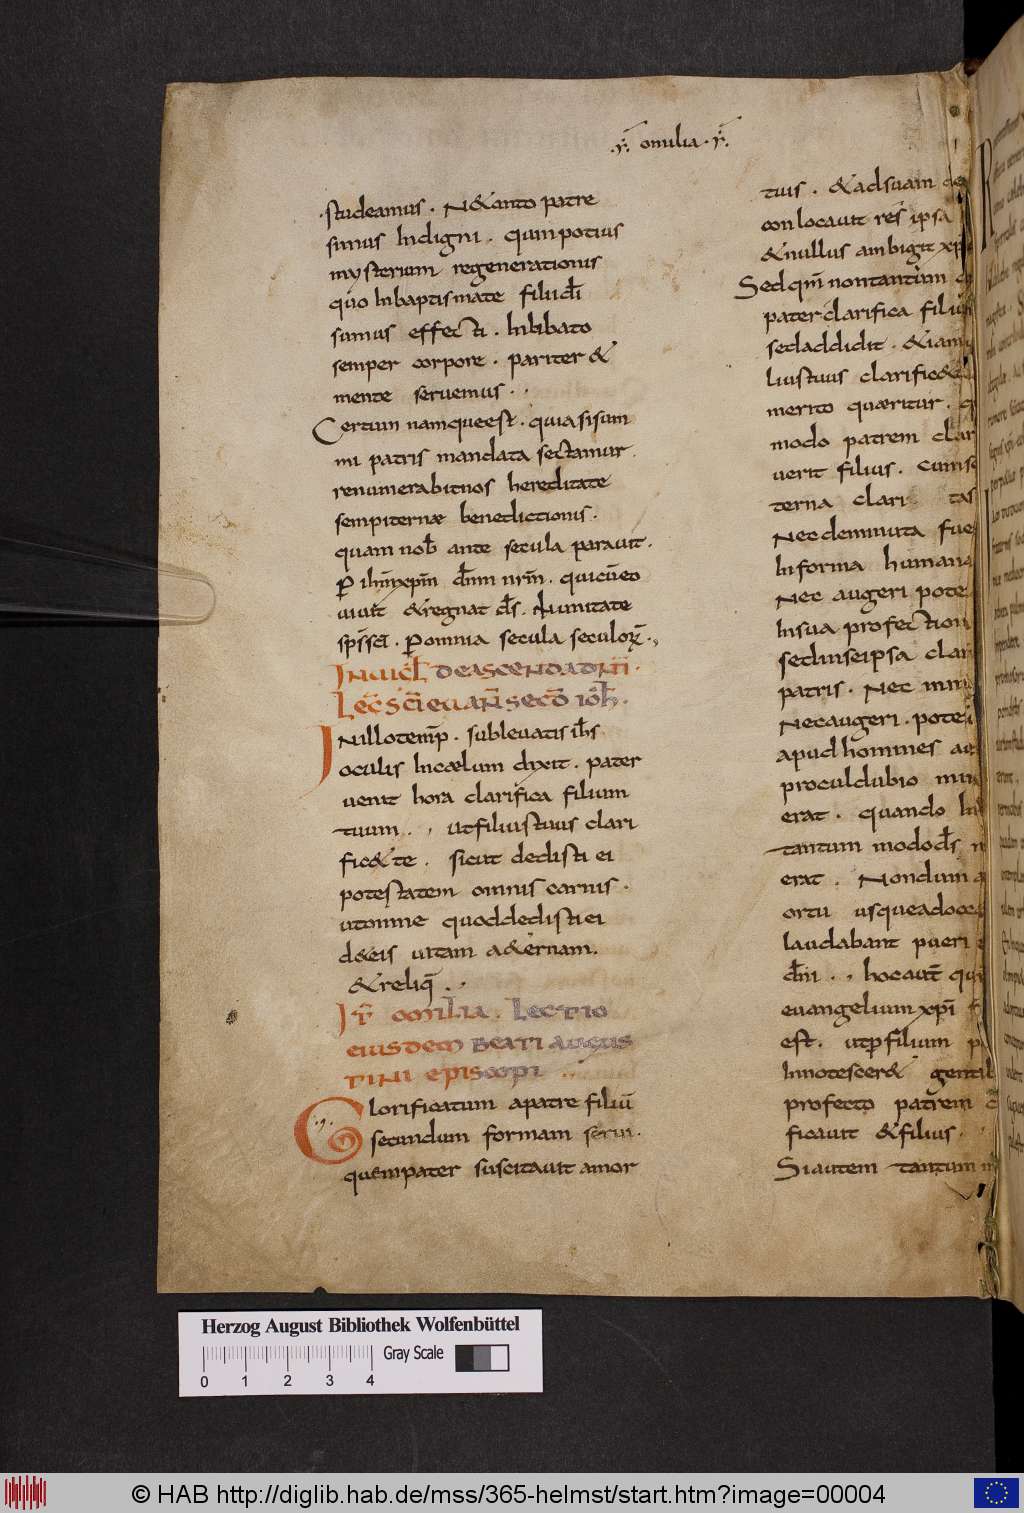 .yı̅. omilia .yı̅.
studeamus . N&anto patre
simus Indigni . qumpotius
mysterium regenerationis
quo Inbaptismate filiidi̅
sumus effecti . Inlibato
semper corpore . pariter &
mente seruemus . .
Certum namqueest . quiasisum
mi patris mandata sectamur .
renumerabitnos hereditate
sempiternæ benedictionis .
quam nob̅ ante secula parauit .
P ihm̅xpm̅ dn̅m nr̅m . quicu̅eo
uiuit &regnat ds̅ . Inunitate
sp̅ssc̅i . Pomnia secula seculorꝝ .,
INUIGL̅ DEASCENDADNI̅ .
LEC̅ SC̅I EUAN̅ SECD̅ IOH̅ .
INillotemp̅ . subleuatis ih̅s
oculis Incælum dixit . pater
uenit hora clarifica filium
tuum . , utfiliustuus clari
fic&te . sicut dedisti ei
potestatem omnis carnis .
utomne quoddedistiei
d&eis uitam a&ernam .
&reliq̅ . ,
IT̅ OMILIA . LECTIO
EIUSDEM BEATI AUGUS
TINI EPISCOPI ...
Glorificatum apatre filiu̅
secundum formam serui .
quempater suscitauit amor
tuis . &adsuam de
conlocauit res̅ ipsa
&nullus ambigit xp̅i
Sed qm̅ nontantum
pater clarifica filiu̅
sedaddidit . &iam
liustuus clarific&
merito quæritur .
modo patrem clar
uerit filius . cumse
terna clari tas
Necdeminuta fue
Informa humana
Nec augeri pote
Insua profection
sedinseipsa clari
patris . Nec minu
Necaugeri . potes
apudhomines au
proculdubio min
erat . quando In
tantum modods̅
erat . Nondum
ortu usqueadocca
laudabant pueri
dn̅i . , hocaut̅ qui
euangelium xpi̅
est . utp filium
Innotescer& gentib
profecto patrem
ficauit &filius . .
Siautem tantum
Herzog August Bibliothek Wolfenbüttel
Gray Scale
0 1 2 3 4
© HAB http://diglib.hab.de/mss/365-helmst/start.htm?image=00004